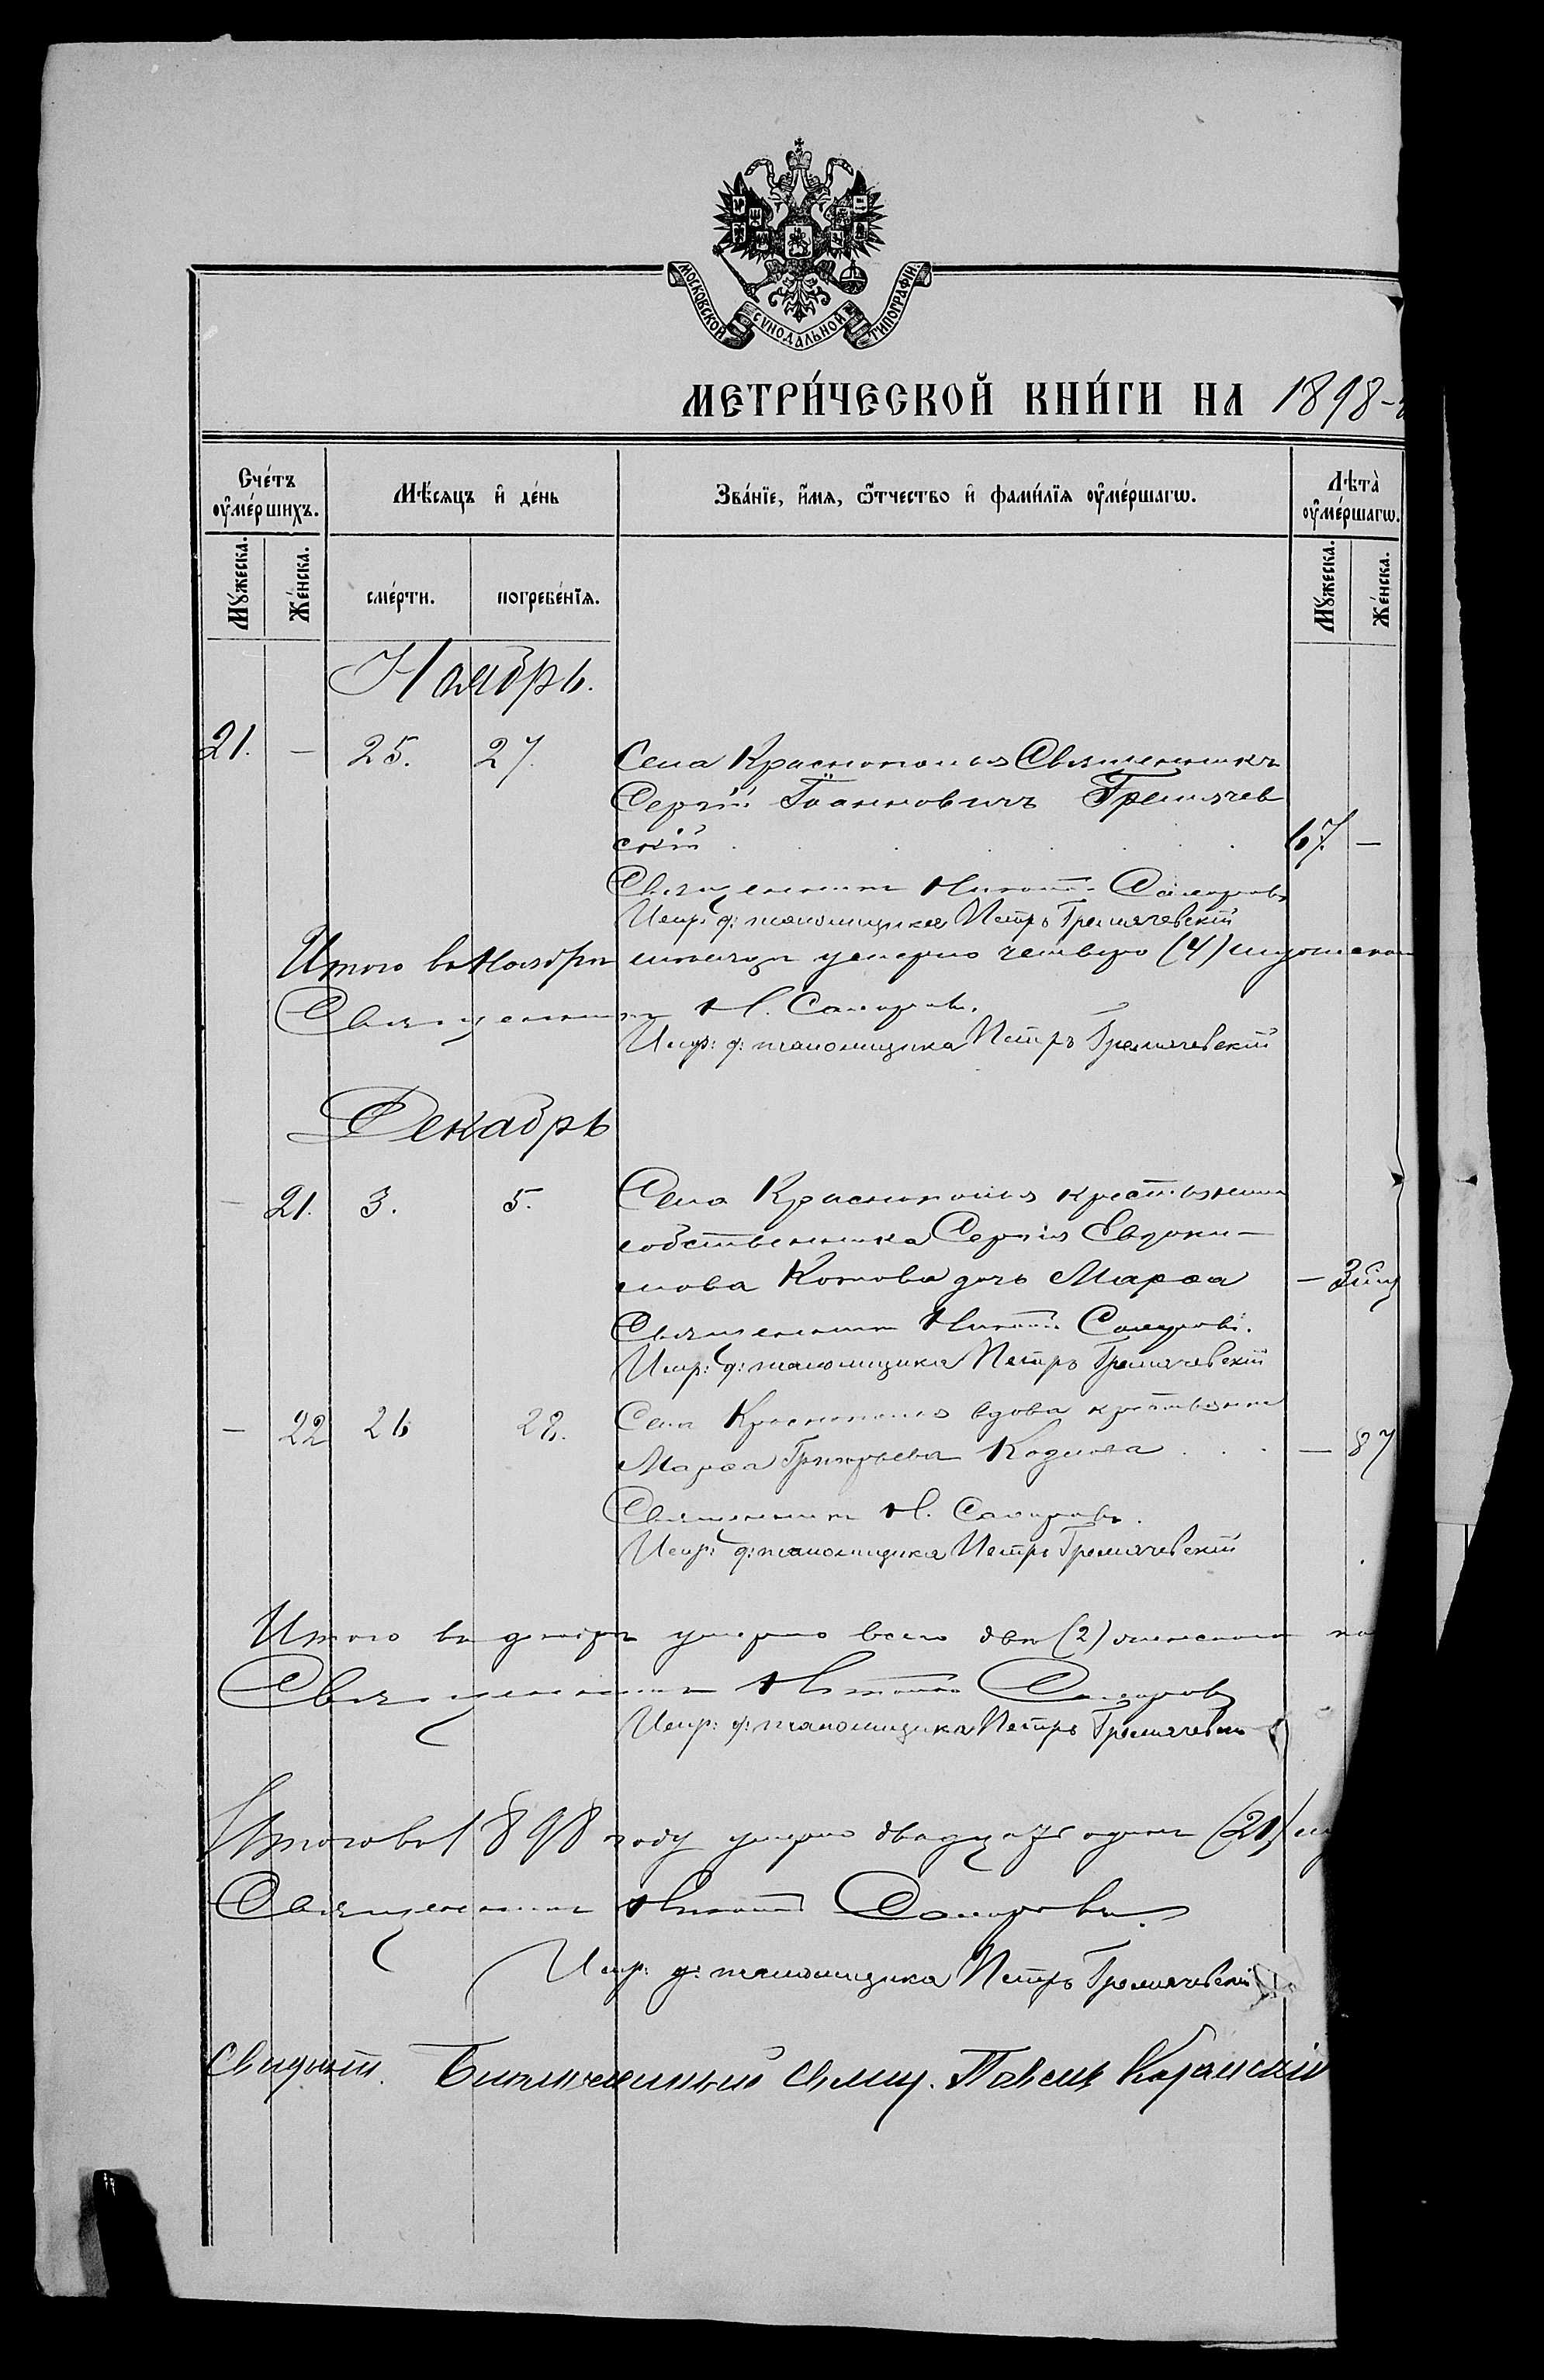 МОСКОВСКОЙ СѴНОДАЛЬНОЙ ТИПОГРАФІИ.
МЕТРИ́ЧЕСКОЙ КНИ́ГИ НА 1898-
Сче́тъ ᲂу҆ме́ршихъ.
Мѣ́сяцъ и҆ де́нь
Зва́нїе, и҆́мѧ, ѻ҆́тчество и҆ фами́лїѧ ᲂу҆ме́ршагѡ.
Лѣта̀ ᲂу҆ме́ршагѡ.
Мꙋ́жеска.
Же́нска.
сме́рти.
погребе́нїѧ.
Мꙋ́жеска.
Же́нска.
Ноябрь.
21. — 25. 27. Села Краснополья Священникъ
Сергій Іоанновичъ Гремячев
скій . . . . . 67. —
Священникъ Сахаровъ
Испр: д: псаломщика Петръ Гремячевскій
Итого въ Ноябрѣ мѣсяцѣ умерло четверо (4)
Священникъ Н. Сахаровъ.
Испр: д: псаломщика Петръ Гремячевскій
Декабрь
— 21. 3. 5. Села Краснополья крестьянина
собственника Сергія Евдоки-
мова Котова дочь Марѳа —
Священникъ Сахаровъ.
Испр: д: псаломщика Петръ Гремячевскій
— 22 26 28. Села Краснополья вдова крестьянка
Марѳа Григорьева Козлова . . . — 87
Священникъ Н. Сахаровъ.
Испр: д: псаломщика Петръ Гремячевскій
Итого въ декабрѣ умерло всего двѣ (2) женскаго по
Священникъ Сахаровъ
Испр: д: псаломщика Петръ Гремячевскій
Итого въ 1898 году умерло двадцать одинъ (21) м
Священникъ Сахаровъ
Испр: д: псаломщика Петръ Гремячевскій
Свидѣт. Благочинный Свящ. Павелъ